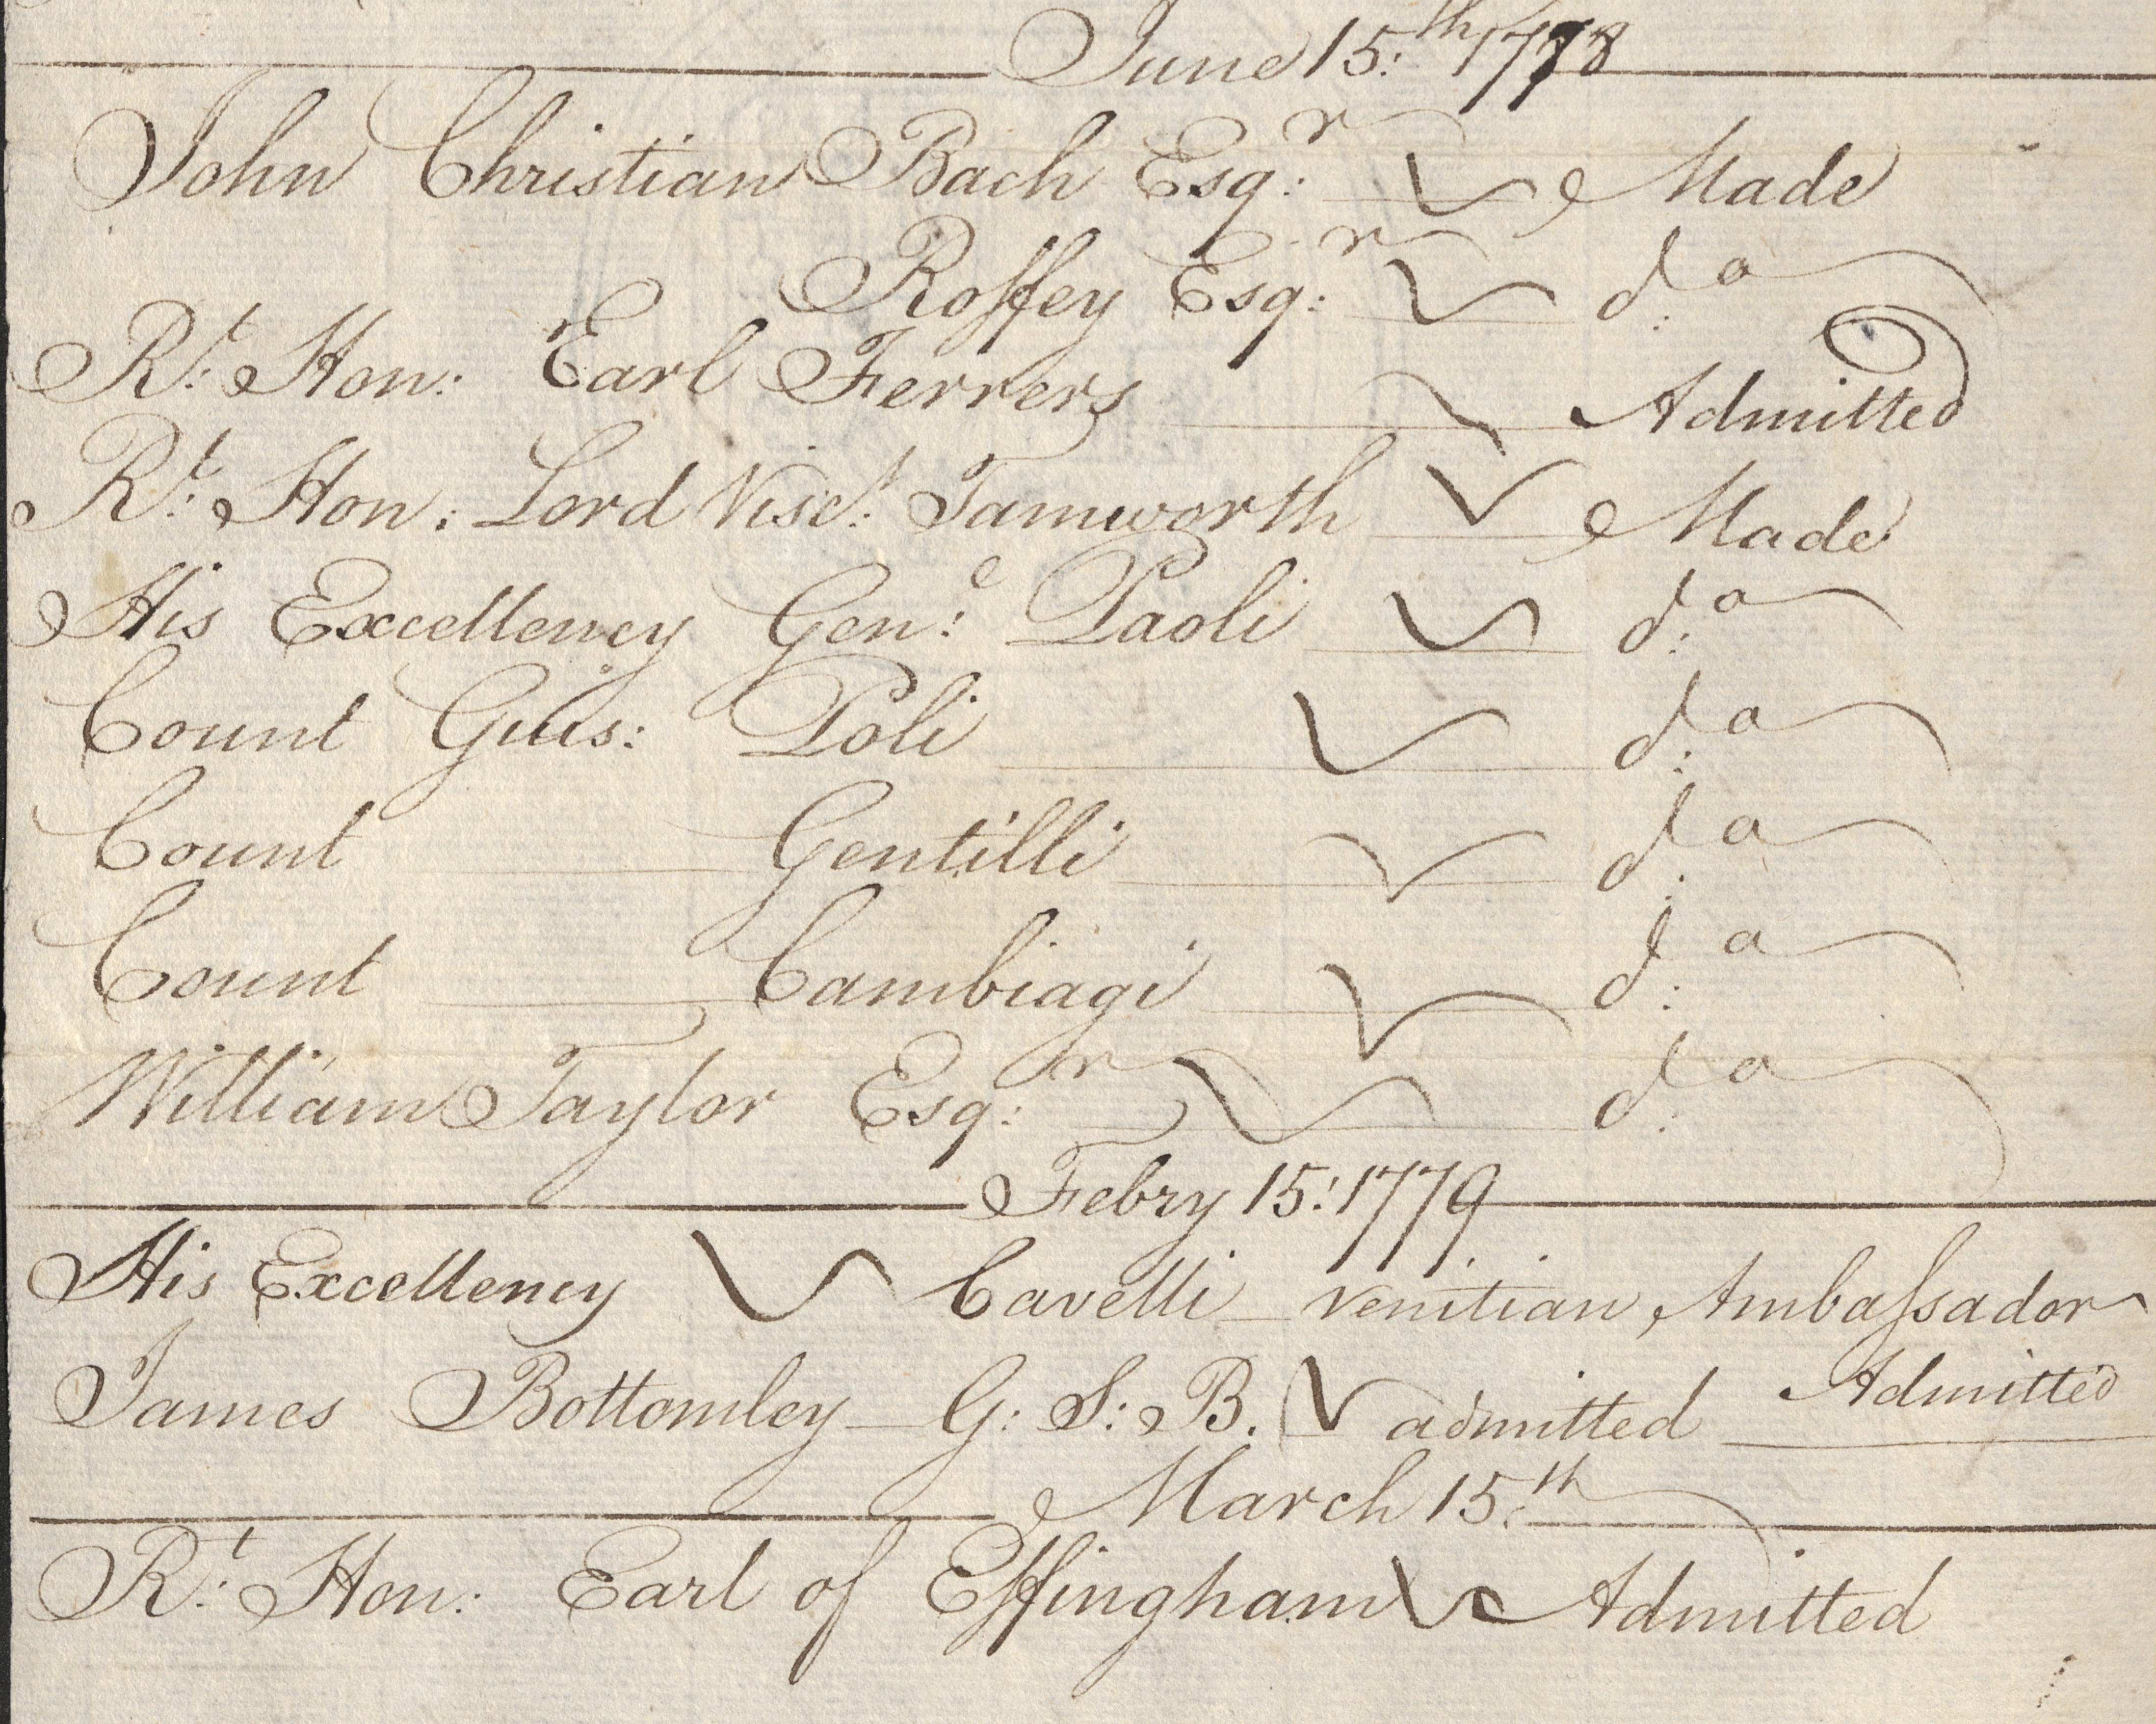 June 15:th 1778
John Christian Bach Esq:r Made
Roffey Esq:r do:
Rt: Hon: Earl Ferrers Admitted
Rt: Hon: Lord Visct: Tamworth Made
His Excellency Genl: Paoli do:
Count Guis: Poli do:
Count Gentilli do:
Count Cambiagi do:
William Taylor Esq:r do:
Febry 15: 1779
His Excellency Cavelli Venitian Ambaſsador
Admitted
James Bottomley G: S: B. admitted
March 15:th
Rt: Hon: Earl of Effingham Admitted